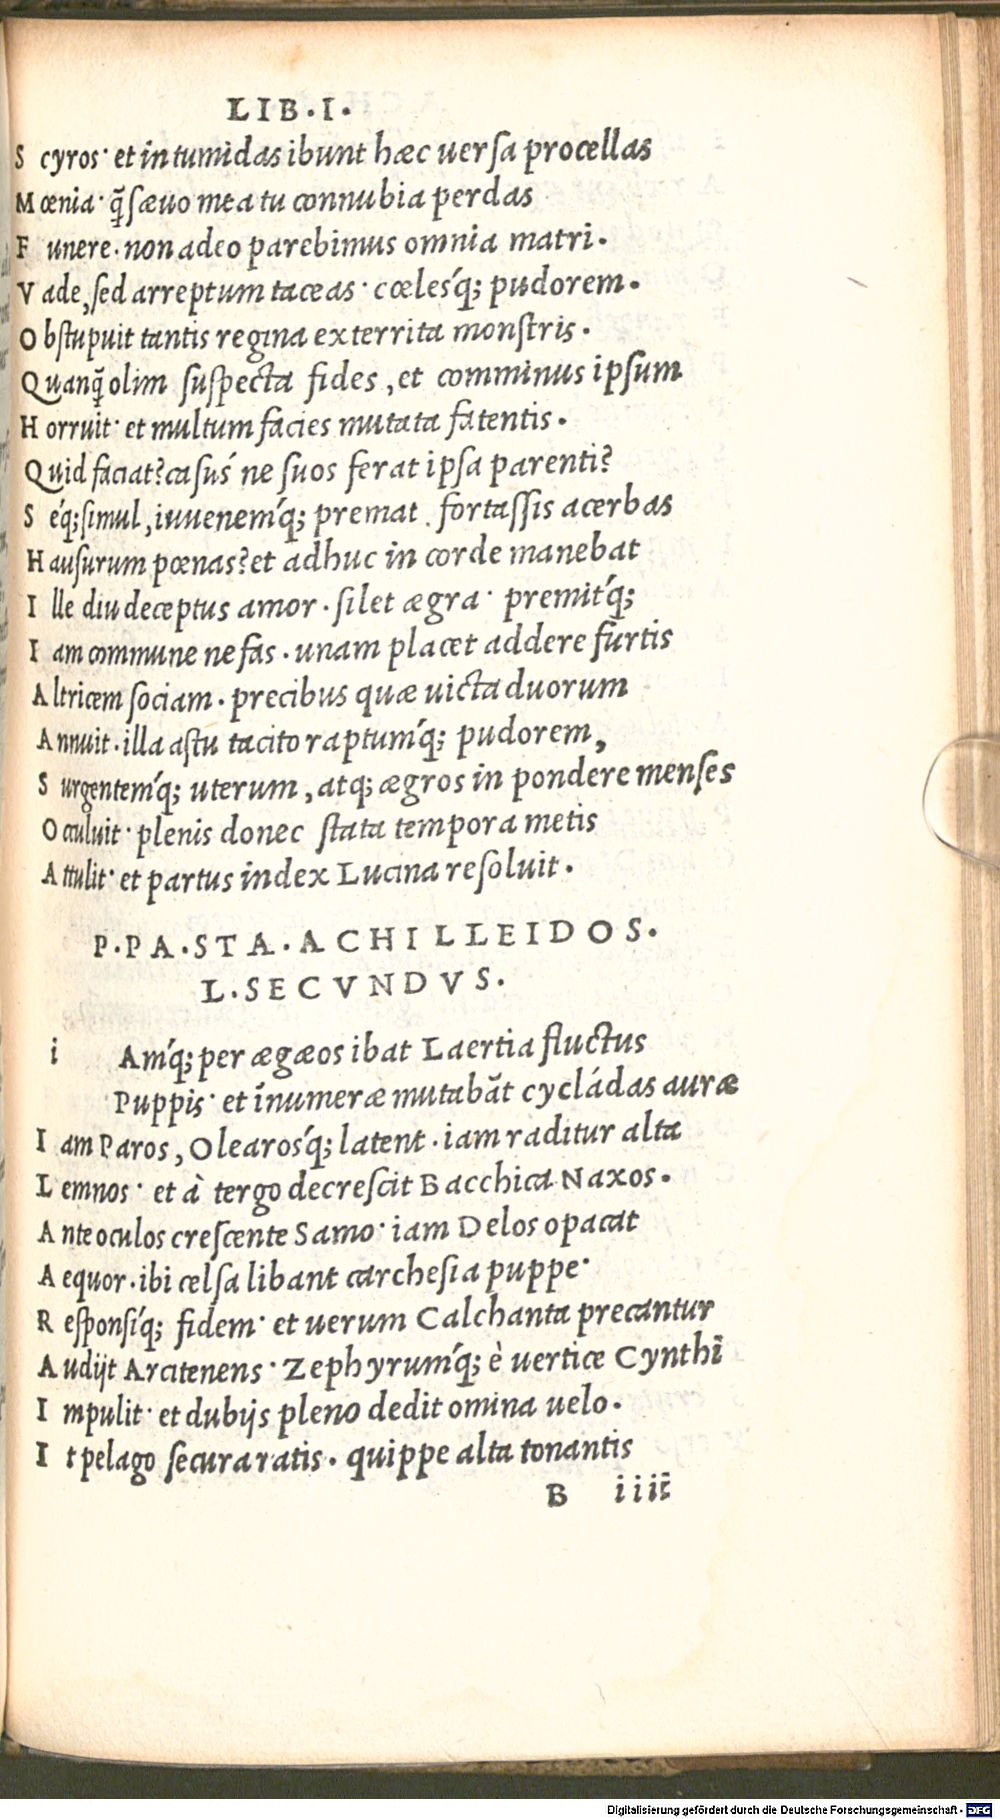 LIB.I.
S cyros· et in tumidas ibunt hæc uersa procellas
M œnia· q̃ sæuo mea tu connubia perdas
F unere. non adeo parebimus omnia matri.
V ade, sed arreptum taceas· cœlesq́; pudorem.
O bstupuit tantis regina exterrita monstris.
Quanq̃ olim suspecta fides, et comminus ipsum
H orruit· et multum facies mutata fatentis.
Quid faciat? casus´ ne suos ferat ipsa parenti?
S eq́; simul, iuuenemq́; premat. fortassis acerbas
H ausurum pœnas? et adhuc in corde manebat
I lle diu deceptus amor. silet ægra· premitq́;
I am commune nefas. unam placet addere furtis
A ltricem sociam. precibus quæ uicta duorum
A nnuit. illa astu tacito raptumq́; pudorem,
S urgentemq́; uterum, atq; ægros in pondere menses
O cculuit· plenis donec stata tempora metis
A ttulit· et partus index Lucina resoluit.
P.PA.STA.ACHILLEIDOS.
L.SECVNDVS.
i Amq́; per ægæos ibat Laertia fluctus
Puppis· et inumeræ mutabāt cycládas auræ
I am Paros, Olearosq́; latent. iam raditur alta
L emnos· et à tergo decrescit Bacchica Naxos.
A nte oculos crescente Samo· iam Delos opacat
A equor. ibi celsa libant carchesia puppe·
R esponsiq́; fidem· et uerum Calchanta precantur
A udijt Arcitenens· Zephyrumq́; è uertice Cynthi
I mpulit· et dubijs pleno dedit omina uelo.
I t pelago secura ratis. quippe alta tonantis
B iiii
Digitalisierung gefördert durch die Deutsche Forschungsgemeinschaft - DFG